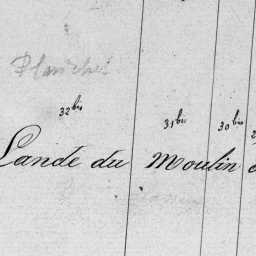 Planches
32 bis
31 bis
30 bis
Lande du Moulin